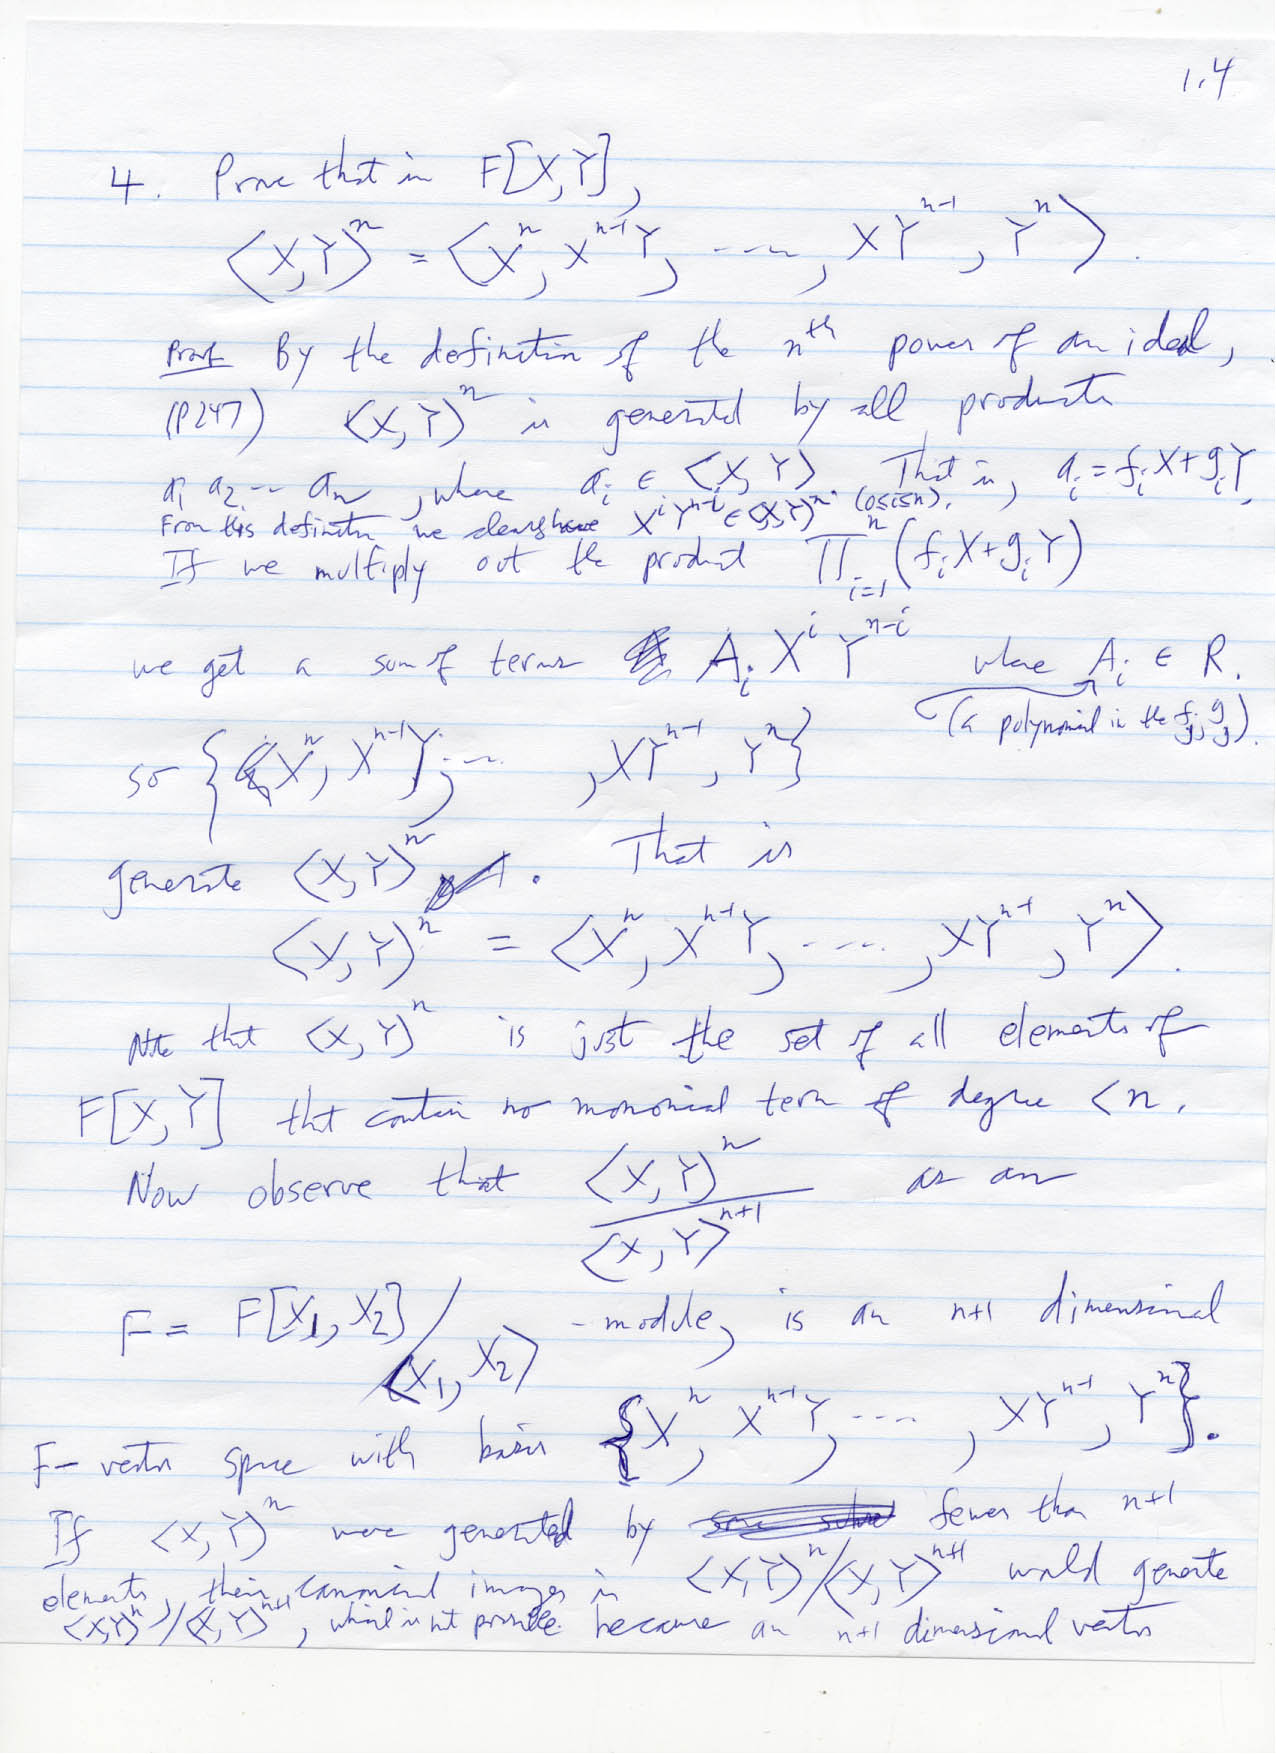 1.4
4. Prove that in F[X,Y],
⟨X,Y⟩^n = ⟨X^n, X^{n-1}Y, ----, XY^{n-1}, Y^n⟩.
Proof By the definition of the n^{th} power of an ideal,
(P247) ⟨X,Y⟩^n is generated by all products
a_1 a_2 --- a_n, where a_i ∈ ⟨X,Y⟩ That is, a_i = f_i X + g_i Y.
From this definition we clearly have X^i Y^{n-i} ∈ ⟨X,Y⟩^n (0≤i≤n).
If we multiply out the product ∏_{i=1}^n (f_i X + g_i Y)
we get a sum of terms A_i X^i Y^{n-i} where A_i ∈ R.
(a polynomial in the f_j, g_j).
so {X^n, X^{n-1}Y, ---, XY^{n-1}, Y^n}
generate ⟨X,Y⟩^n. That is
⟨X,Y⟩^n = ⟨X^n, X^{n-1}Y, ----, XY^{n-1}, Y^n⟩.
Note that ⟨X,Y⟩^n is just the set of all elements of
F[X,Y] that contain no monomial term of degree < n.
Now observe that ⟨X,Y⟩^n / ⟨X,Y⟩^{n+1} as an
F = F[X_1, X_2] / ⟨X_1, X_2⟩ - module, is an n+1 dimensional
F- vector space with basis {X^n, X^{n-1}Y, ----, XY^{n-1}, Y^n}.
If ⟨X,Y⟩^n were generated by fewer than n+1
elements, their canonical images in ⟨X,Y⟩^n/⟨X,Y⟩^{n+1} would generate
⟨X,Y⟩^n/⟨X,Y⟩^{n+1}, which is not possible because an n+1 dimensional vector